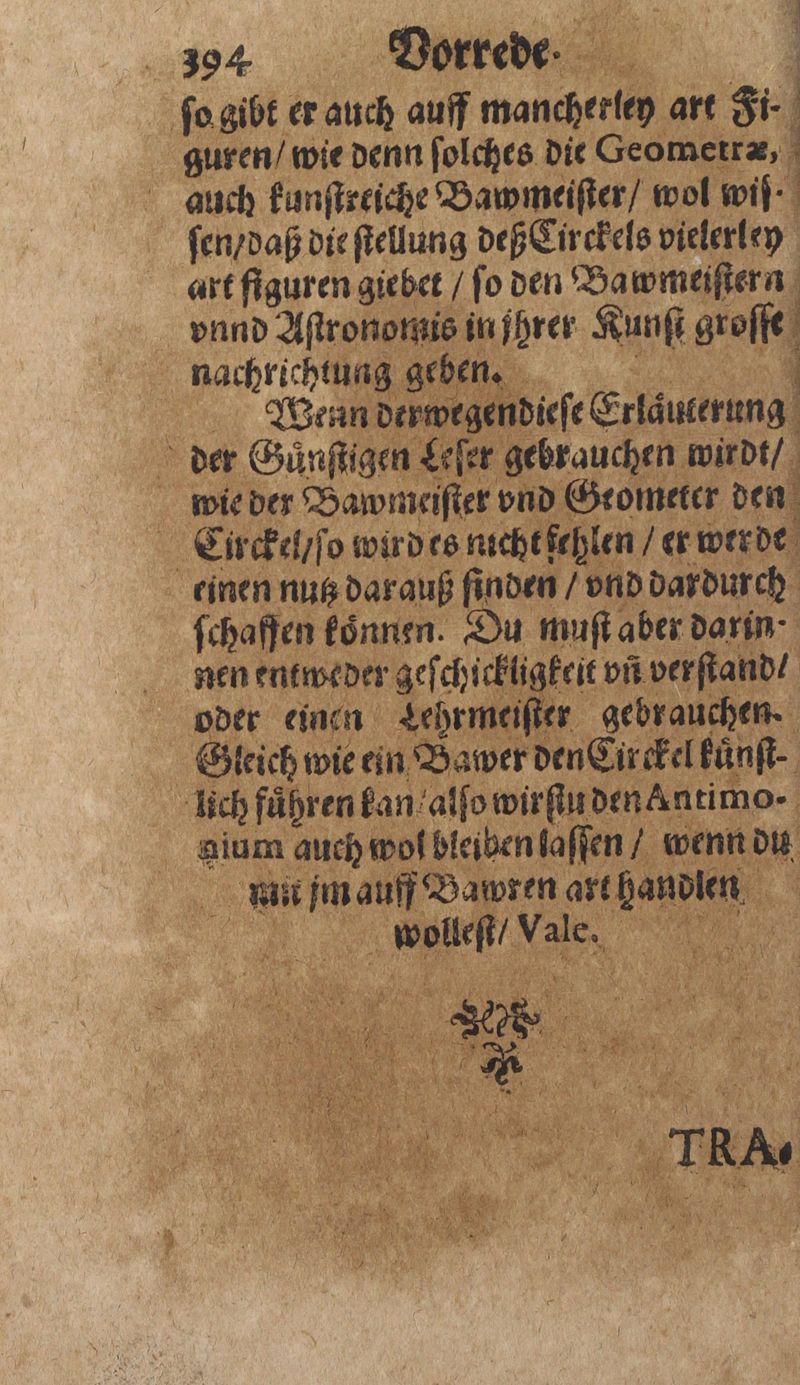 394 Vorrede.
ſo gibt er auch auff mancherley art Fi-
guren/ wie denn ſolches die Geometræ,
auch kunſtreiche Bawmeiſter/ wol wiſ-
ſen/daß die ſtellung deß Circkels vielerley
art figuren giebet / ſo den Bawmeiſtern
vnnd Aſtronomis in jhrer Kunſt groſſe
nachrichtung geben.
Wenn derwegen dieſe Erlaͤuterung
der Guͤnſtigen Leſer gebrauchen wirdt/
wie der Bawmeiſter vnd Geometer den
Circkel/ſo wird es nicht fehlen / er werde
einen nutz darauß finden / vnd dardurch
ſchaffen koͤnnen. Du muſt aber darin-
nen entweder geſchickligkeit vñ verſtand/
oder einen Lehrmeiſter gebrauchen.
Gleich wie ein Bawer den Circkel kuͤnſt-
lich fuͤhren kan/alſo wirſtu den Antimo-
nium auch wol bleiben laſſen / wenn du
mit jm auff Bawren art handlen
wolleſt/ Vale.
TRA-